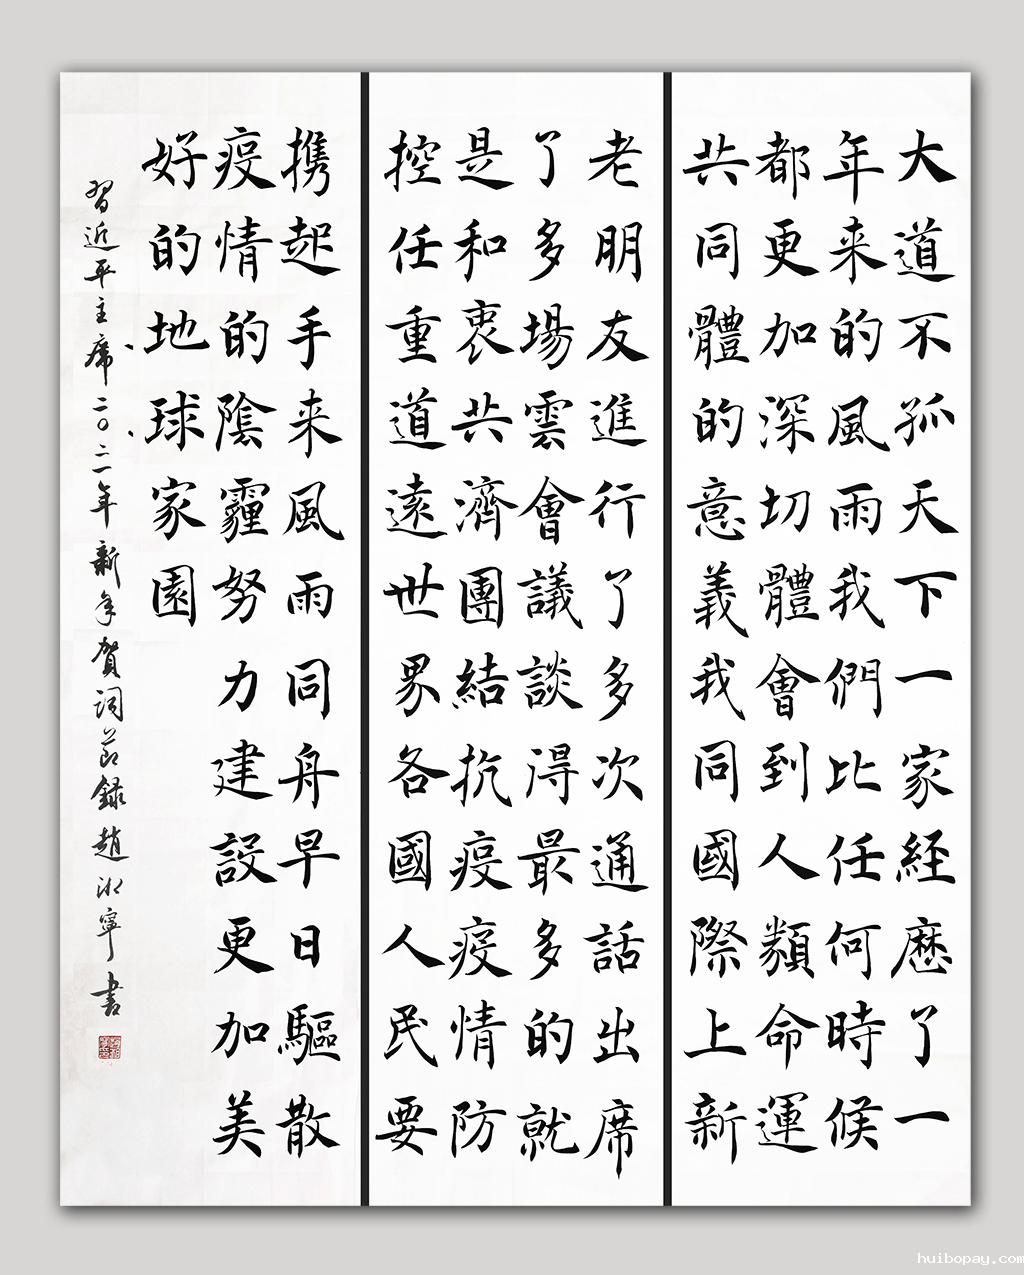 大道不孤天下一家経歷了一
年来的風雨我們比任何時候
都更加深切體會到人類命運
共同體的意義我同國際上新
老朋友進行了多次通話出席
了多場雲會議談得最多的就
是和衷共濟團結抗疫疫情防
控任重道遠世界各國人民要
携起手来風雨同舟早日驅散
疫情的陰霾努力建設更加美
好的地球家園
習近平主席二〇二一年新年贺词节録趙寧書
huibopay.com